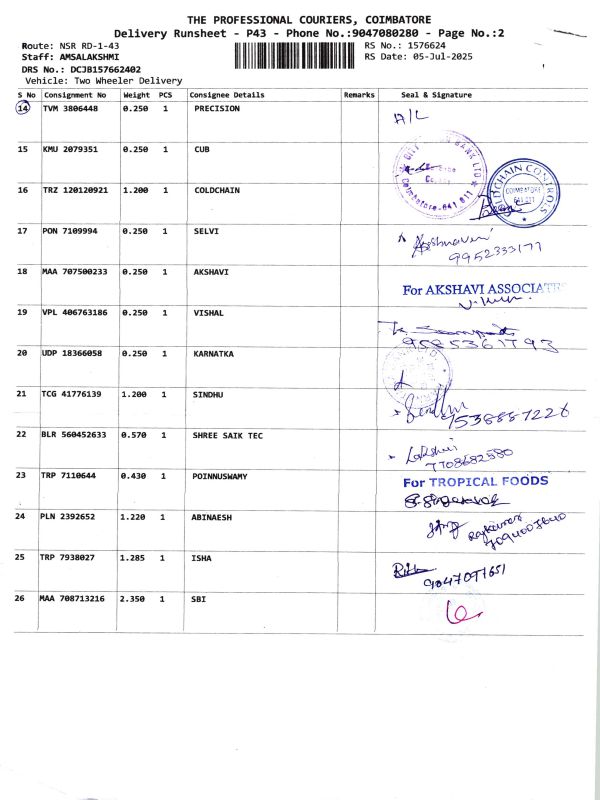 THE PROFESSIONAL COURIERS, COIMBATORE
Delivery Runsheet - P43 - Phone No.:9047080280 - Page No.:2
Route: NSR RD-1-43 RS No.: 1576624
Staff: AMSALAKSHMI RS Date: 05-Jul-2025
DRS No.: DCJB157662402
Vehicle: Two Wheeler Delivery
S No Consignment No Weight PCS Consignee Details Remarks Seal & Signature
14 TVM 3806448 0.250 1 PRECISION A/L
15 KMU 2079351 0.250 1 CUB
BANK LTD
Coimbatore-641 011
16 TRZ 120120921 1.200 1 COLDCHAIN
COLDCHAIN CONTROLS
COIMBATORE
641 011
17 PON 7109994 0.250 1 SELVI
9952333177
18 MAA 707500233 0.250 1 AKSHAVI
For AKSHAVI ASSOCIATES
19 VPL 406763186 0.250 1 VISHAL
9585361793
20 UDP 18366058 0.250 1 KARNATKA
21 TCG 41776139 1.200 1 SINDHU
Sindhu
22 BLR 560452633 0.570 1 SHREE SAIK TEC
Lakshmi
7708682580
23 TRP 7110644 0.430 1 POINNUSWAMY
For TROPICAL FOODS
24 PLN 2392652 1.220 1 ABINAESH
Rajkumar
25 TRP 7938027 1.285 1 ISHA
9047077651
26 MAA 708713216 2.350 1 SBI